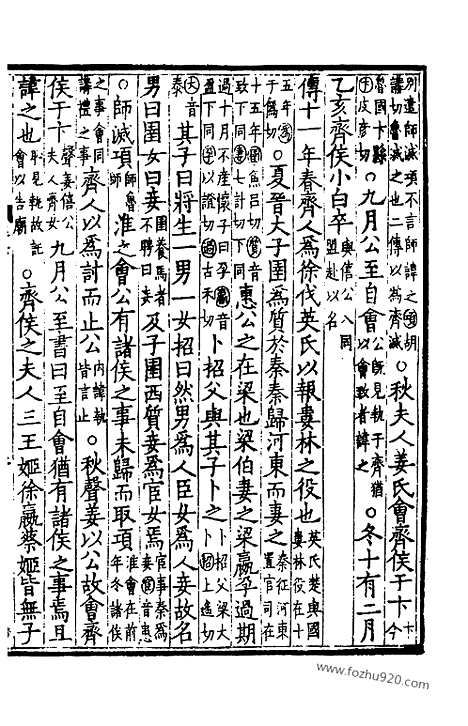 別遣師滅項不言師諱之項胡講切魯滅之也二傳以為齊滅○秋夫人姜氏會齊侯于卞卞今
魯國卞縣卞皮彦切○九月公至自會公既見執于齊猶以會致者諱之○冬十有二月
乙亥齊侯小白卒與僖公八同盟赴以名
傳十一年春齊人為徐伐英氏以報婁林之役也英氏楚與國婁林役在十
五年為于偽切○夏晉大子圉為質於秦秦歸河東而妻之秦征河東置官司在
十五年圉魚呂切質音致下同妻七計切下同惠公之在梁也梁伯妻之梁嬴孕過期
過十月不產懷子曰孕嬴音盈下同孕以證切過古禾切卜招父與其子卜之卜招父梁大卜招上遙切
大音泰其子曰將生一男一女招曰然男為人臣女為人妾故名
男曰圉女曰妾圉養馬者不聘曰妾及子圉西質妾為宦女焉宦事秦為妾宦音患
○師滅項師魯師淮之會公有諸侯之事未歸而取項淮會在前年冬諸侯
之事會同講禮之事齊人以為討而止公內諱執皆言止○秋聲姜以公故會齊
侯于卞聲姜僖公夫人齊女九月公至書曰至自會猶有諸侯之事焉且
諱之也耻見執故託會以告廟○齊侯之夫人三王姬徐嬴蔡姬皆無子
www.fozhu920.com